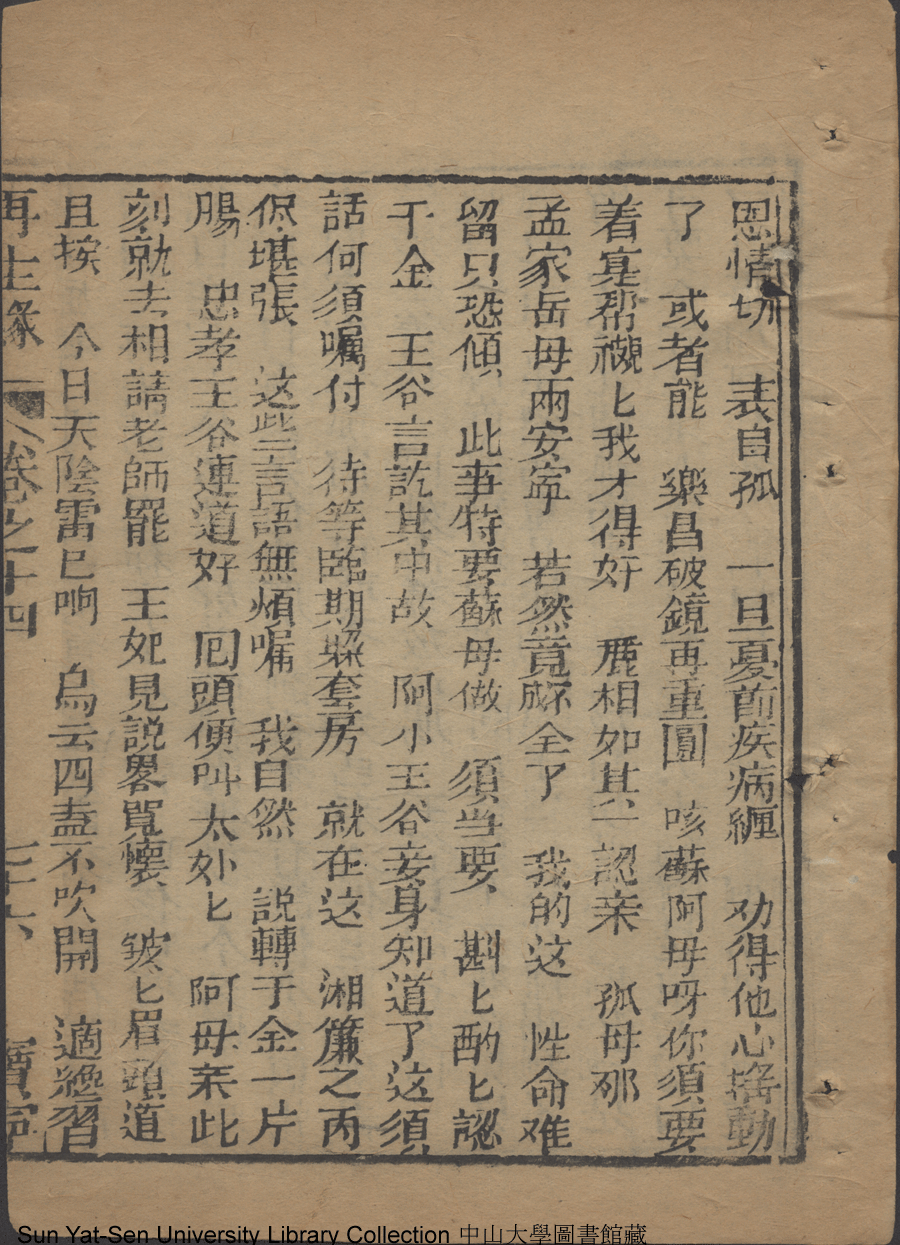 恩情切　表自孤　一旦憂節疾病纏　劝得他心搖動
了　或者能　樂昌破鏡再重圓　咳蘇阿母呀你須要
着寔帮襯匕我才得好　麗相如其一認亲　孤母那
孟家岳母兩安寧　若然竟成全了　我的这　性命难
留只恐傾　此事特要蘇母做　須当要　斟匕酌匕認
千金　王谷言訖其中故　阿小王谷妾身知道了这須
話何須囑付　待等臨期躱套房　就在这　湘簾之丙
保堪張　这些言語無煩囑　我自然　説轉于金一片
腸　忠孝王谷連道好　囘頭便叫太外匕　阿母来此
刻就去相請老師罷　王妃見説畧寬懷　皺匕眉頭道
且挨　今日天陰雷已响　烏云四盖不吹開　適纔習
再生緣　卷之十四　七十六　寶寧
Sun Yat-Sen University Library Collection 中山大學圖書館藏